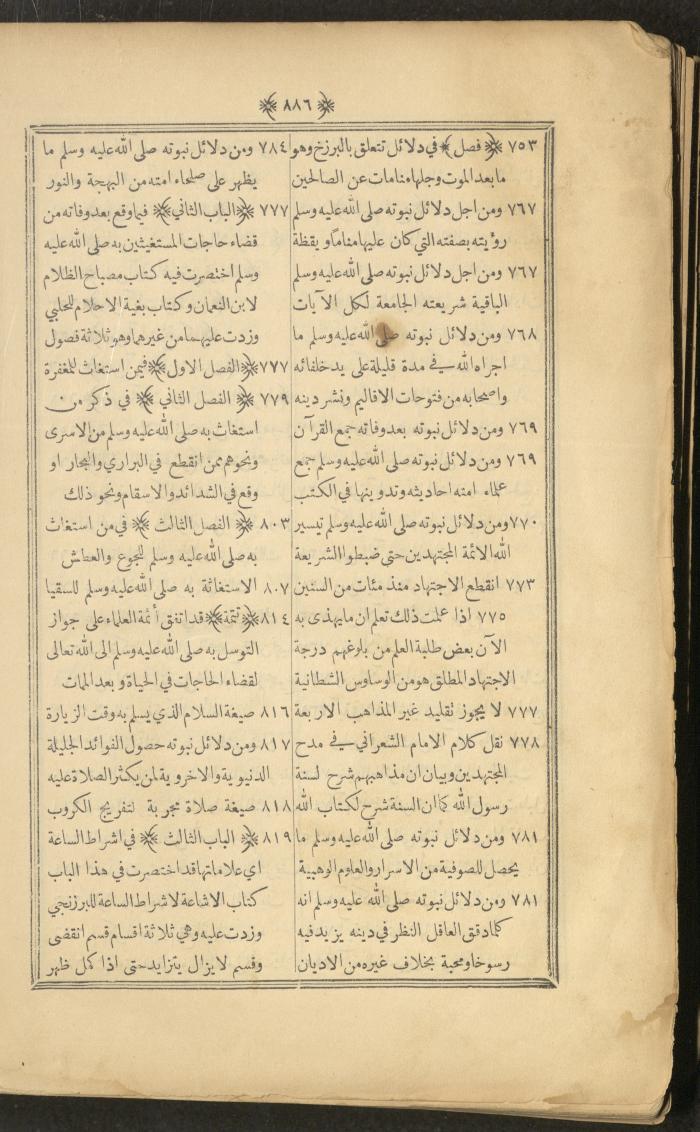 ﴿٨٨٦﴾
٧٥٣ ﴿ فصل ﴾ في دلائل تتعلق بالبرزخ وهو
ما بعد الموت وجلها منامات عن الصالحين
٧٦٧ ومن اجل دلائل نبوته صلى الله عليه وسلم
رؤيته بصفته التي كان عليها مناما ويقظة
٧٦٧ ومن اجل دلائل نبوته صلى الله عليه وسلم
الباقية شريعته الجامعة لكل الآيات
٧٦٨ ومن دلائل نبوته صلى الله عليه وسلم ما
اجراه الله في مدة قليلة على يد خلفائه
واصحابه من فتوحات الاقاليم ونشر دينه
٧٦٩ ومن دلائل نبوته بعد وفاته جمع القرآن
٧٦٩ ومن دلائل نبوته صلى الله عليه وسلم جمع
علماء امته احاديثه وتدوينها في الكتب
٧٧٠ ومن دلائل نبوته صلى الله عليه وسلم تيسير
الله الائمة المجتهدين حتى ضبطوا الشريعة
٧٧٣ انقطع الاجتهاد منذ مئات من السنين
٧٧٥ اذا علمت ذلك تعلم ان ما يهذي به
الآن بعض طلبة العلم من بلوغهم درجة
الاجتهاد المطلق هو من الوساوس الشطانية
٧٧٧ لا يجوز تقليد غير المذاهب الاربعة
٧٧٨ نقل كلام الامام الشعراني في مدح
المجتهدين وبيان ان مذاهبهم شرح لسنة
رسول الله كما ان السنة شرح لكتاب الله
٧٨١ ومن دلائل نبوته صلى الله عليه وسلم ما
يحصل للصوفية من الاسرار والعلوم الوهبية
٧٨١ ومن دلائل نبوته صلى الله عليه وسلم انه
كلما دقق العاقل النظر في دينه يزيد فيه
رسوخا ومحبة بخلاف غيره من الاديان
٧٨٤ ومن دلائل نبوته صلى الله عليه وسلم ما
يظهر على صلحاء امته من البهجة والنور
٧٧٧ ﴿ الباب الثاني ﴾ فيما وقع بعد وفاته من
قضاء حاجات المستغيثين به صلى الله عليه
وسلم اختصرت فيه كتاب مصباح الظلام
لابن النعمان وكتاب بغية الاحلام للحلبي
وزدت عليهما من غيرهما وهو ثلاثة فصول
٧٧٧ ﴿ الفصل الاول ﴾ فيمن استغاث للمغفرة
٧٧٩ ﴿ الفصل الثاني ﴾ في ذكر من
استغاث به صلى الله عليه وسلم من الاسرى
ونحوهم ممن انقطع في البراري والبحار او
وقع في الشدائد والاسقام ونحو ذلك
٨٠٣ ﴿ الفصل الثالث ﴾ في من استغاث
به صلى الله عليه وسلم للجوع والعطش
٨٠٧ الاستغاثة به صلى الله عليه وسلم للسقيا
٨١٤ ﴿ تتمة ﴾ قد اتفق أئمة العلماء على جواز
التوسل به صلى الله عليه وسلم الى الله تعالى
لقضاء الحاجات في الحياة وبعد الممات
٨١٦ صيغة السلام الذي يسلم به وقت الزيارة
٨١٧ ومن دلائل نبوته حصول الفوائد الجليلة
الدنيوية والاخروية لمن يكثر الصلاة عليه
٨١٨ صيغة صلاة مجربة لتفريج الكروب
٨١٩ ﴿ الباب الثالث ﴾ في اشراط الساعة
اي علاماتها قد اختصرت في هذا الباب
كتاب الاشاعة لاشراط الساعة للبرزنجي
وزدت عليه وهي ثلاثة اقسام قسم انقضى
وقسم لا يزال يتزايد حتى اذا كمل ظهر